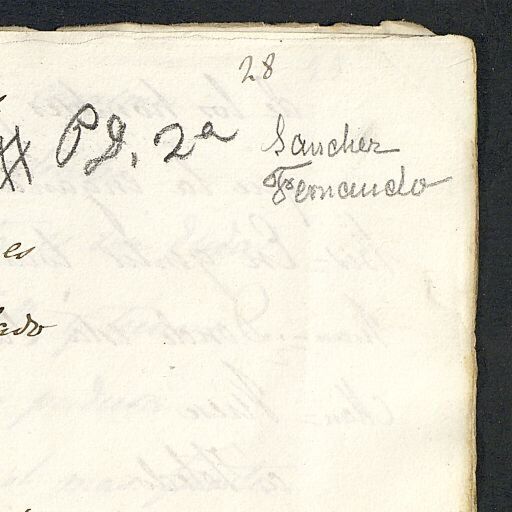 28
Pg. 2a
Sanchez
Fernando
es